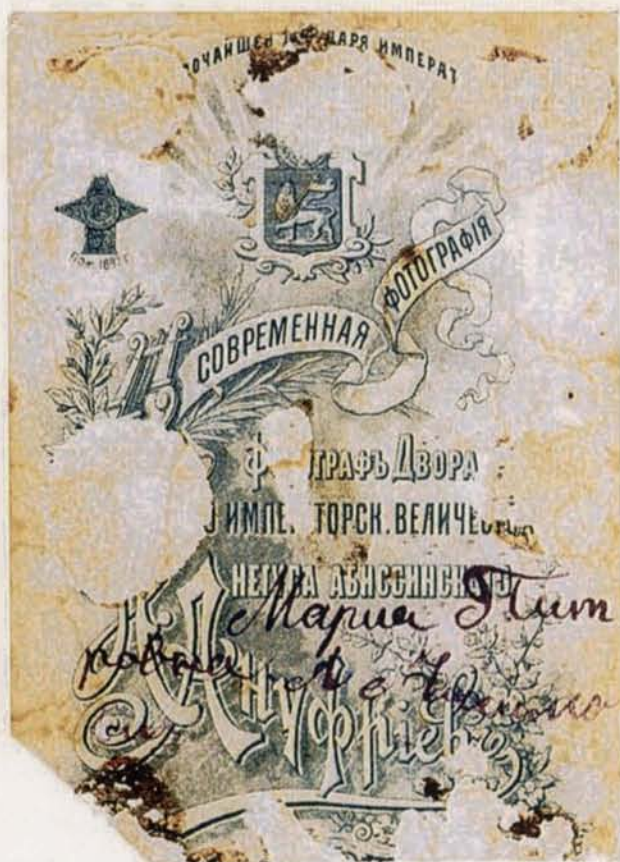 ОЧАЙШЕ ДАРЯ ИМПЕРАТ
1897 г.
СОВРЕМЕННАЯ
ФОТОГРАФІЯ
Ф ГРАФЪ ДВОРА
ИМПЕ ТОРСК. ВЕЛИЧЕС
НЕГУСА АБИССИНСКОГО
Мария Пит
ровна
Ануфріевъ